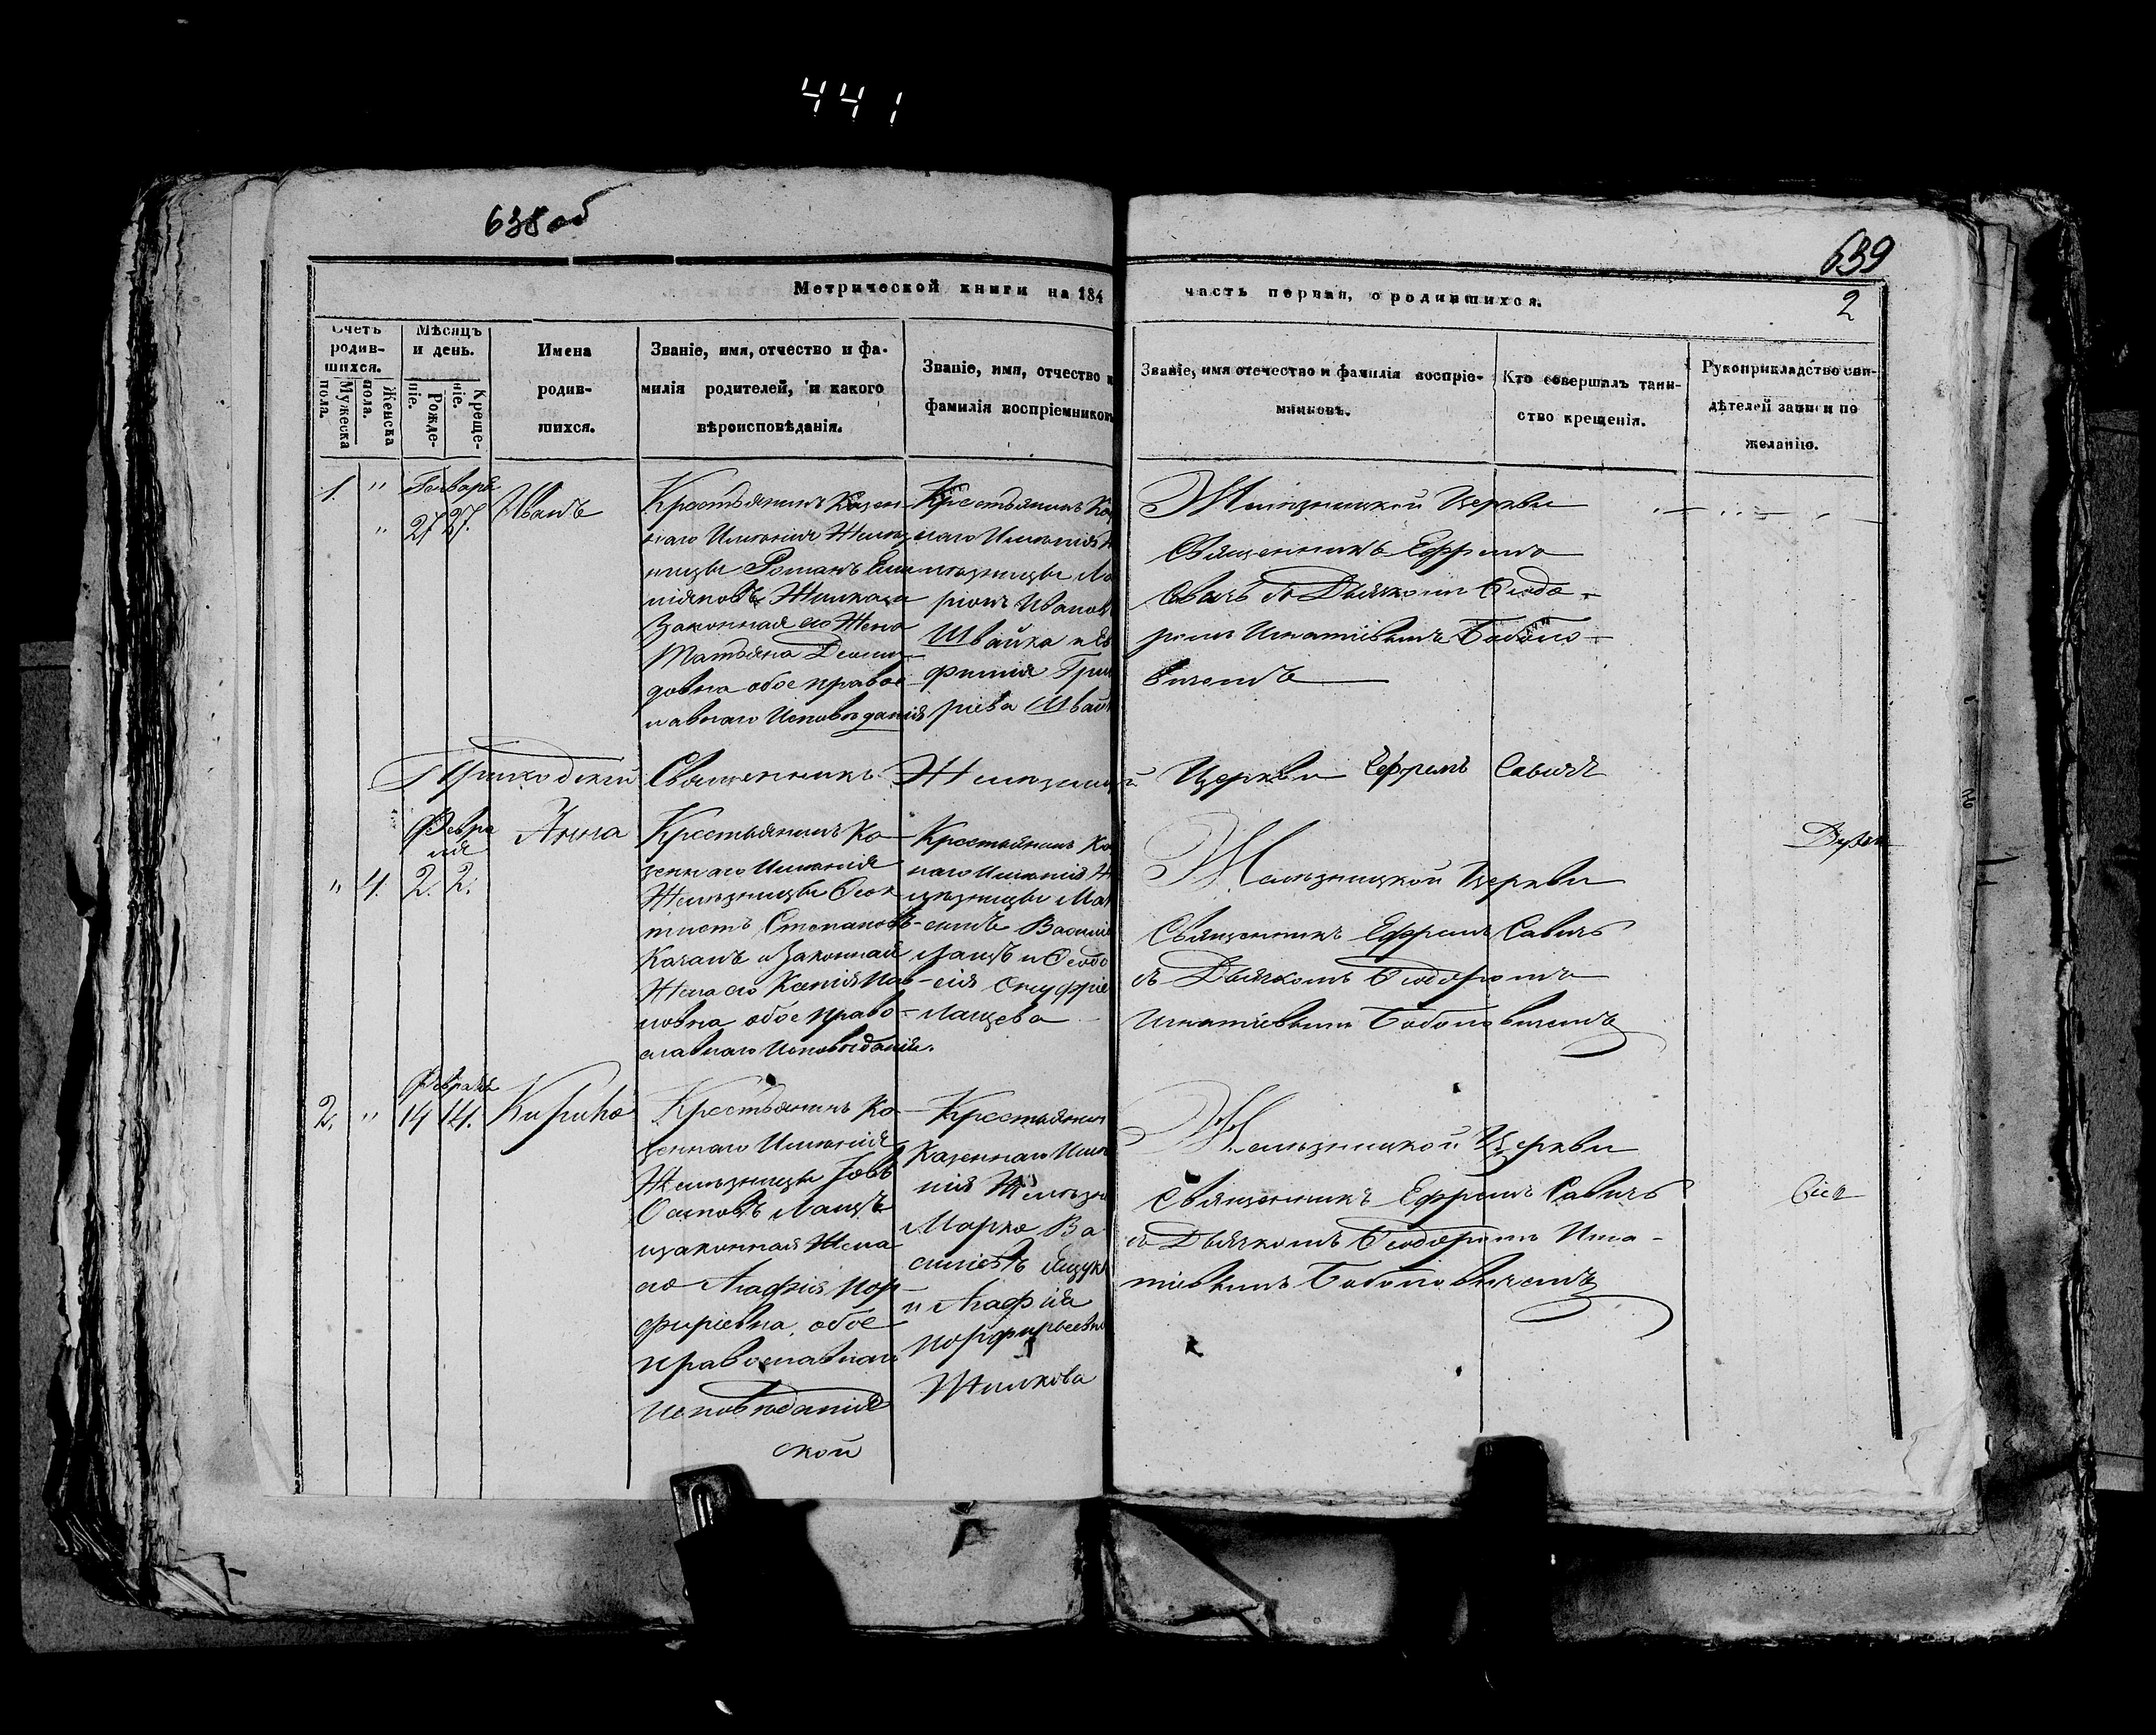 441
638 об
639
2
Метрической книги на 184
часть первая, о родившихся.
Счетъ родив-шихся.
Мужеска пола.
Женска пола.
Мѣсяцъ и день.
Рожде-ніе.
Креще-ніе.
Имена родив-шихся.
Званіе, имя, отчество и фа-
милія родителей, и какого
вѣроисповѣданія.
Званіе, имя, отчество и
фамилія воспріемниковъ
Званіе, имя отечество и фамилія воспріе-
мниковъ.
Кто совершалъ таин-
ство крещенія.
Рукоприкладство сви-
дѣтелей записи по
желанію.
1. " Генваря
" 27 27. Иванъ
Крестьянинъ Казен-
наго Имѣнія
Романъ
Законная его Жена
Татьяна
довна обое правос
лавнаго Исповѣданія
Крестьянинъ Ка
наго Имѣнія
ріонъ Иванов
Швайка и Ев
фимія Григ
ріева Швай
Желѣзницкой Церкви
Священникъ Ефремъ
Савичъ съ Дьячкомъ Феодо-
ромъ Игнатіевымъ Бобопо-
вичемъ
Приходскій Священникъ Желѣзницкой Церкви Ефремъ Савичъ
Февра
ля
" 4. 2. 2. Анна
Крестьянинъ Ка-
зеннаго Имѣнія
Желѣзницы Феок
тистъ Степановъ
Качанъ и Законная
Жена его Ксенія Пав-
ловна обое право-
славнаго Исповѣданія.
Крестьянинъ Ка
наго Имѣнія Ж
лѣзницы Мак
симъ Василіе
Лащъ и Феодо
сія Онуфріе
Лащева
Желѣзницкой Церкви
Священникъ Ефремъ Савичъ
съ Дьячкомъ Феодоромъ
Игнатіевымъ Бобоповичемъ
2. " Февраля
14 14. Кирикъ
Крестьянинъ Ка-
зеннаго Имѣнія
Желѣзницы Іовъ
Лащъ
изаконная Жена
его Агафія Пор-
фиріевна, обое
православнаго
Исповѣданія
ской
Крестьянинъ
Казеннаго Имѣ
нія Желѣзн
Марко Ва
силіевъ Ящук
и Агафія
Порфирьевна
Жилкова
Желѣзницкой Церкви
Священникъ Ефремъ Савичъ
съ Дьячкомъ Феодоромъ Игна-
тіевымъ Бобоповичемъ